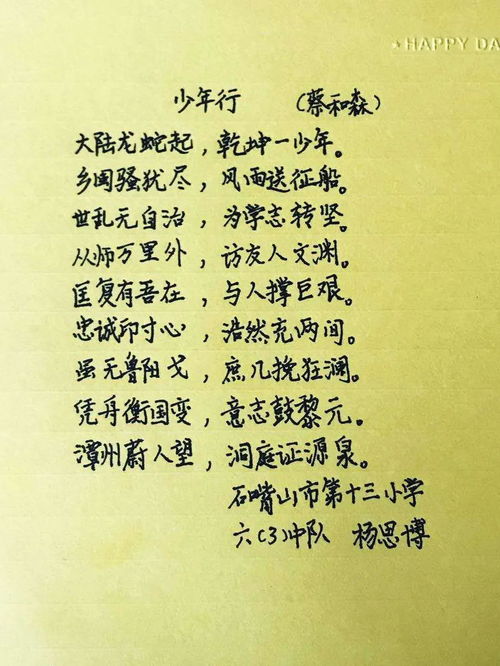 ★HAPPY DA
少年行 （蔡和森）
大陆龙蛇起，乾坤一少年。
乡国骚扰尽，风雨送征船。
世乱无自治，为学志转坚。
从师万里外，访友人文渊。
匡复有吾在，与人撑巨艰。
忠诚印寸心，浩然充两间。
虽无鲁阳戈，庶几挽狂澜。
凭舟衡国变，意志鼓黎元。
潭州蔚人望，洞庭证源泉。
石嘴山市第十三小学
六（3）中队 杨思博